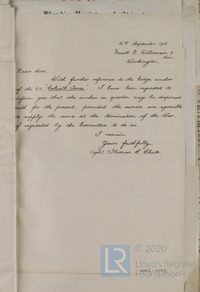 25th September 191
Messrs R. Williamson &
Son
Workington
Dear Sirs,
With further reference to the kedge anchor
of the ss I have been requested to
inform you that the anchor in question may be dispensed
with for the present provided the owners are agreeable
to supply the same at the termination of the War
if requested by the Committee to do so.
I remain,
Yours faithfully,
(sgd) Thomas
© 2020
Lloyd's Register
Foundation
LR